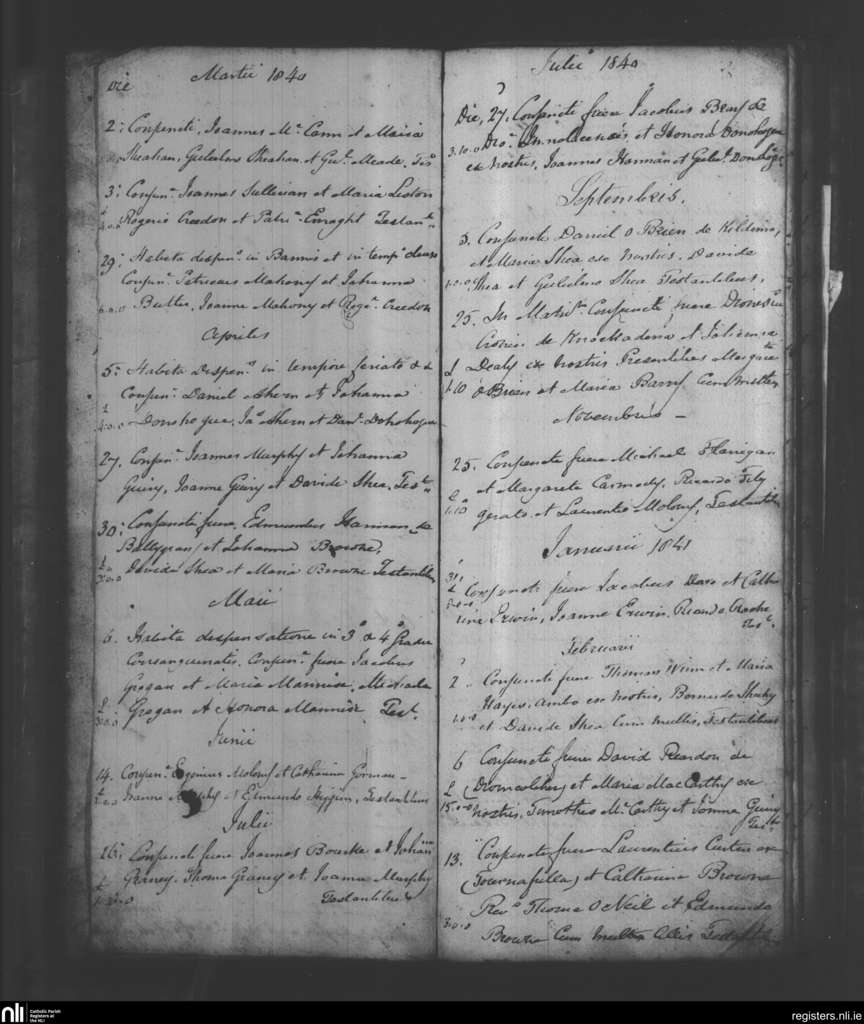 Die Martii 1840
2: Conjuncti, Joannes Mc Cann et Maria
Sheahan, Gulielmo Sheahan et Gul. Meade, Tes
3: Conjun. Joannes Sullivan et Maria Liston
Rogerio Creedon et Patri. Enraght Testant
29: Habita dispen. in Bannis et in temp. clauso
Conjun. Patricius Mahony et Johanna
6.0.0 Butler, Joanne Mahony et Roge. Creedon
Aprilis
5: Habita Dispen. in tempore feriato &
Conjun. Daniel Ahern et Johanna
£ 4.0.0 Donohogue, Ja Ahern et Danl. Donohogue
27, Conjun. Joannes Murphy et Johanna
Guiry, Joanne Guiry et Davide Shea, Test
30: Conjuncti fuere, Edmundus Hannan de
Ballygran, et Johanna Browne,
£ 3.0.0 Davide Shea et Maria Browne Testantibus
Maii
6. Habita dispensatione in 3o & 4o gradu
Consanguinatis. Conjun. fuere Jacobus
Grogan et Maria Mannix, Michaele
£ 3.0.0 Grogan et Honora Mannix Test.
Junii
14. Conjun. Eugenius Molony et Catharina Gorman
Joanne Murphy et Edmundo Higgins, Testantibus
Julii
16: Conjuncti fuere Joannes Bourke et Johan
Graney. Thoma Graney et Joanne Murphy
Testantibus
Julii 1840
Die, 27, Conjuncti fuere Jacobus Beary de
3.10.0 et Honora Donohogue
ex nostris, Joannes Hannan et Gulil. Donohogue
Septembris.
5. Conjuncti Daniel O Brien de Kildimo,
et Maria Shea ex nostris, Davide
1.0.0 Shea et Gulielmo Shea Testantibus,
25. In Matri. Conjuncti fuere Dionysius
Cronin de Knockaderra et Juliana
£ Dealy ex nostris Presentibus Margare
1.10 O Brien et Maria Barry Cum multis
Novembris
25. Conjuncti fuere Michael Flanigan
et Margareta Carmody, Ricardo Fitz
£ 1.10 gerald et Laurentio Molony, Testantibus
Januarii 1841
31 Conjuncti fuere Jacobus et Cathe
rine Erwin, Joanne Erwin, Ricardo Roche
Test.
Februarii
2 Conjuncti fuere Thomas Winn et Maria
Hayes, ambo ex nostris, Bernardo Sheehy
1.0.0 et Davide Shea Cum multis, Testantibus
6 Conjuncti fuere David Reardon de
£ Dromcolliher, et Maria MacCarthy ex
15.0.0 nostris, Timotheo Mc Carthy et Joanna Guiry
Test
13. Conjuncti fuere Laurentius Curtin ex
(Tournafulla) et Catherine Browne
Revd. Thoma O Neil et Edmundo
3.0.0 Browne Cum multis Aliis
nli
Catholic Parish
Registers at
the NLI
registers.nli.ie